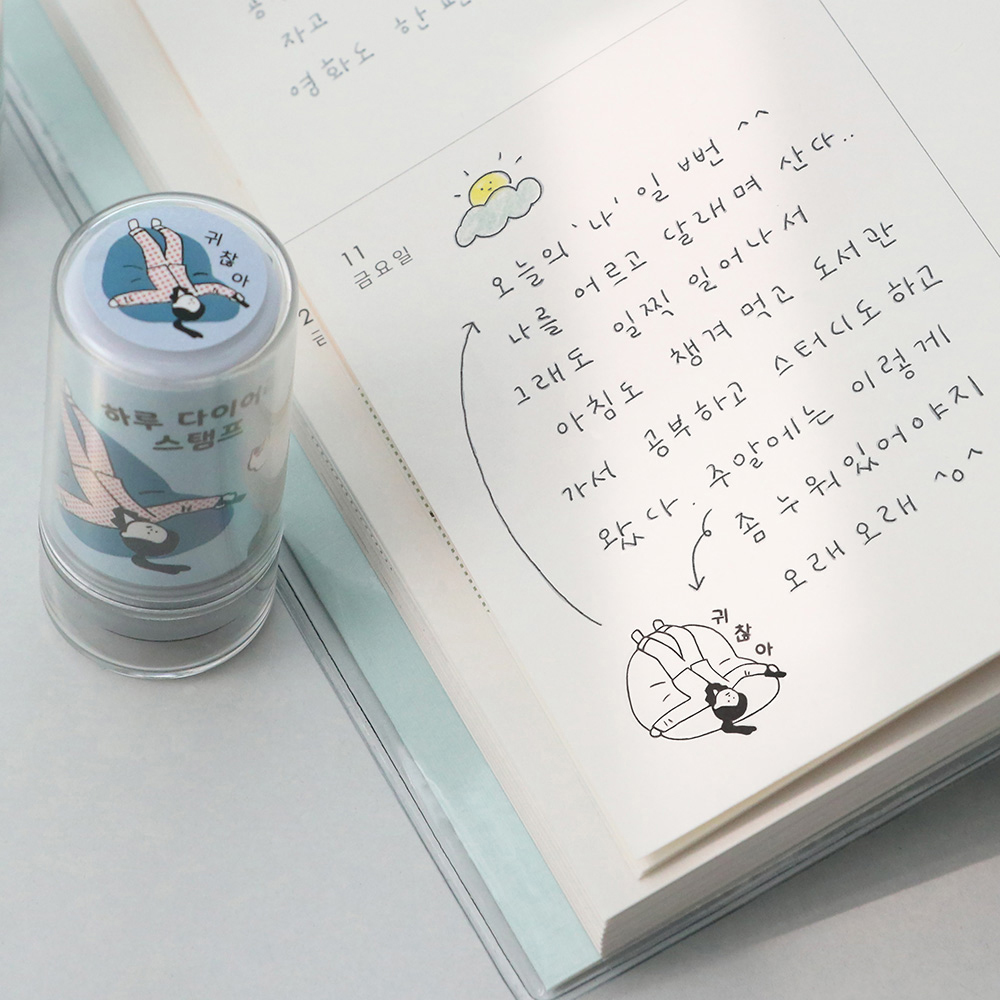 자고
영화도 한 편
11
금요일
오늘의 '나' 일 빠번 ^^
나를 어르고 달래며 산다..
그래도 일찍 일어나서
아침도 챙겨 먹고 도서관
가서 공부하고 스터디도 하고
왔다. 주말에는 이렇게
좀 누워있어야지
오래 오래 ^o^
귀
찮
아
귀
찮
아
하루 다이어리
스탬프
2